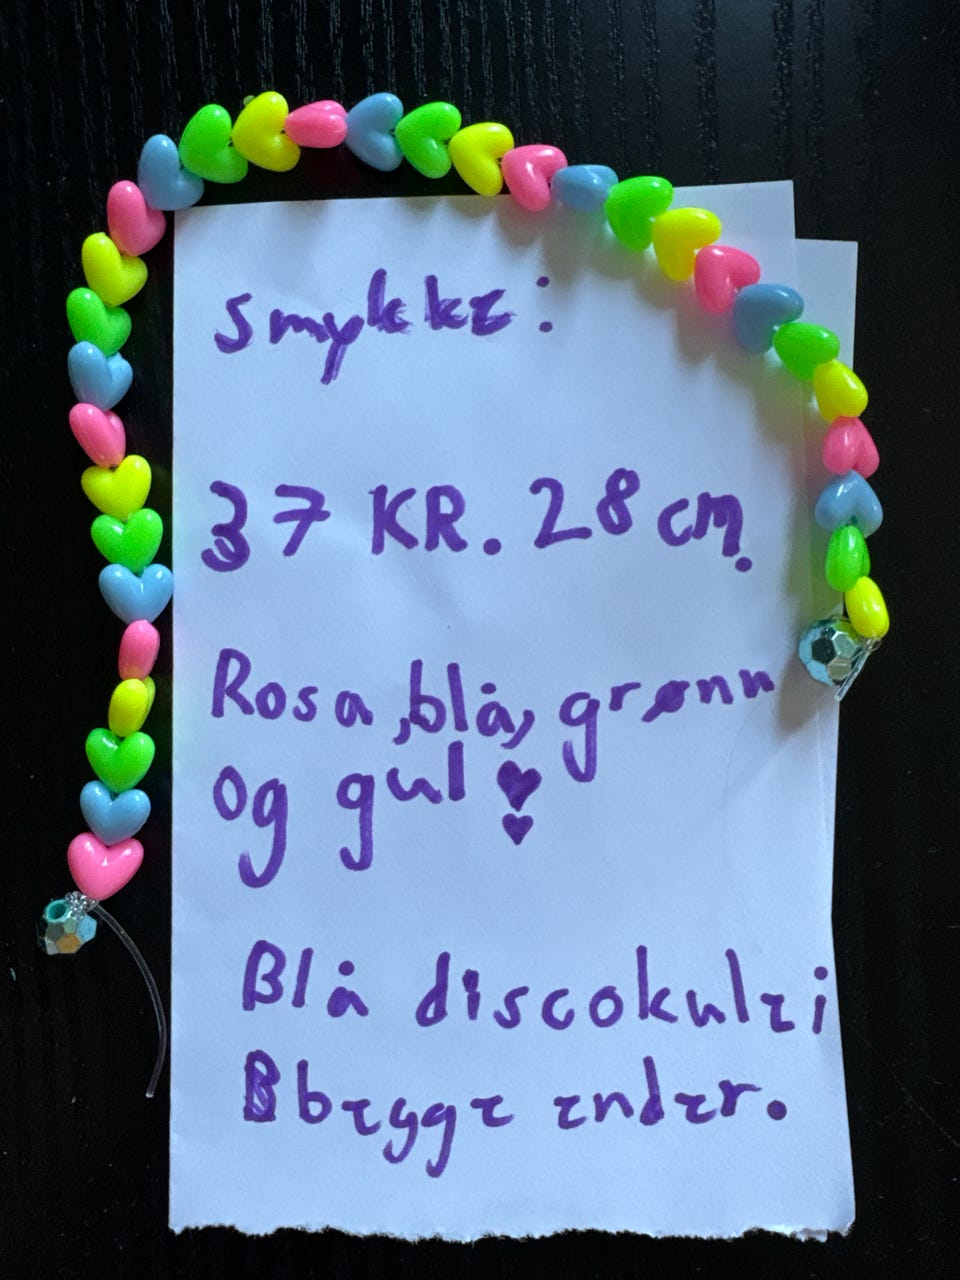 smykke:
37 KR. 28 cm.
Rosa, blå, grønn
og gul
Blå discokule i
B begge ender.